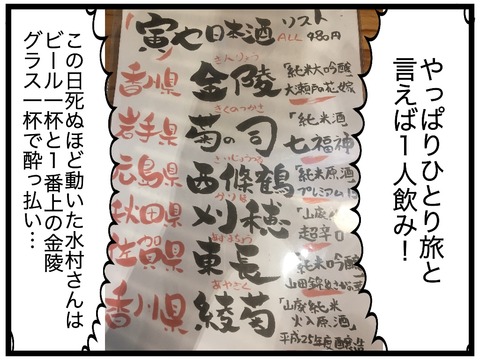 やっぱりひとり旅と
言えば1人飲み!
寅や日本酒リスト
ALL 980円
きんりょう
香川県 金陵 「純米大吟醸
大瀬戸の花嫁
きくのつかさ
岩手県 菊の司 「純米酒
七福神
さいじょうつる
広島県 西條鶴 「純米原酒
プレミアム
かりほ
秋田県 刈穂 「山廃
超辛口
あずまちょう
佐賀県 東長 「純米吟醸
山田錦
あやぎく
香川県 綾菊 「山廃純米
火入原酒」
平成25年度醸造
この日死ぬほど動いた水村さんは
ビール一杯と1番上の金陵
グラス一杯で酔っ払い…